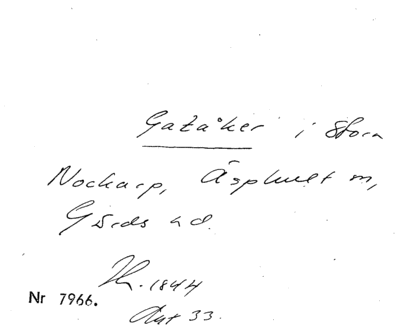 Gatåker i Stora
Nockarp, Äsphult m,
Gärds hd.
1844
Nr 7966.
Akt 33.